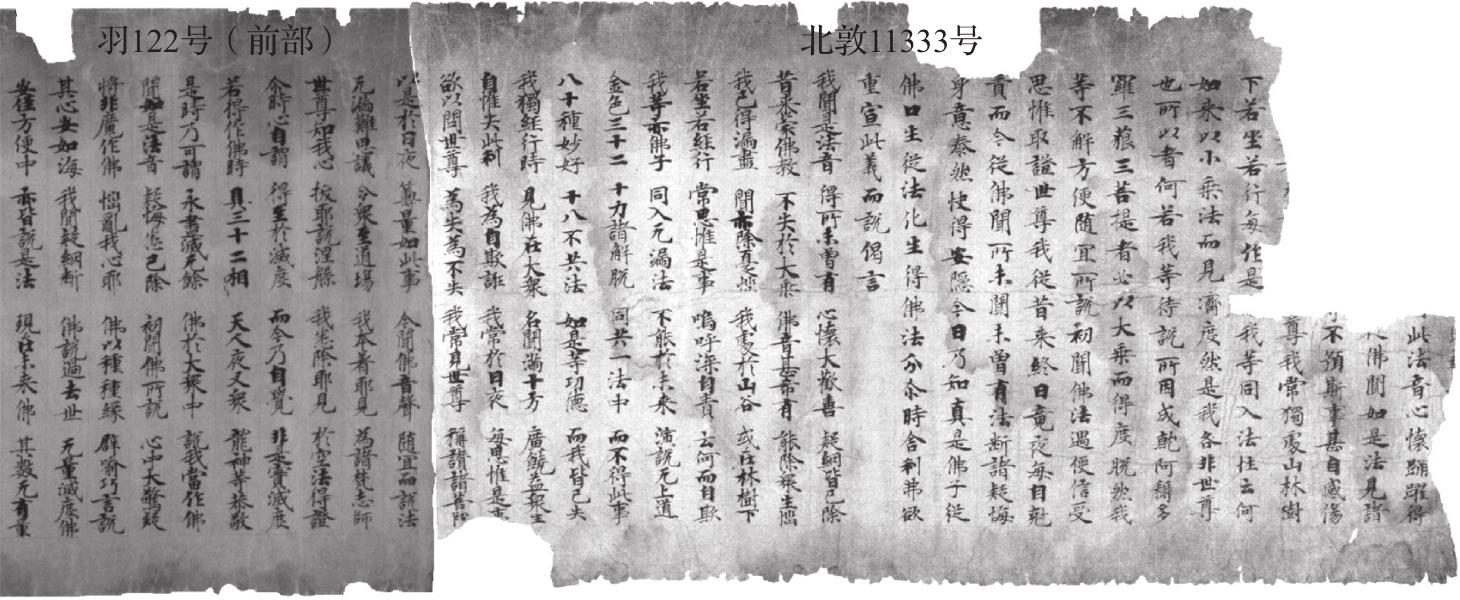 羽122号（前部）
北敦11333号
此法音心懷踊躍得
佛聞如是法見諸
不預斯事甚自感傷
尊我常獨處山林樹
下若坐若行每作是 我等同入法性云何
如來以小乘法而見濟度然是我各非世尊
也所以者何若我等待說所因成就阿耨多
羅三藐三菩提者必以大乘而得度脫然我
等不解方便隨宜所說初聞佛法遇便信受
思惟取證世尊我從昔來終日竟夜每自剋
責而今從佛聞所未聞未曾有法斷諸疑悔
身意泰然快得安隱今日乃知真是佛子從
佛口生從法化生得佛法分尒時舍利弗欲
重宣此義而說偈言
我聞是法音 得所未曾有 心懷大歡喜 疑網皆已除
昔來蒙佛教 不失於大乘 佛音甚希有 能除眾生惱
我已得漏盡 聞亦除憂惱 我處於山谷 或在林樹下
若坐若經行 常思惟是事 嗚呼深自責 云何而自欺
我等亦佛子 同入无漏法 不能於未來 演說无上道
金色三十二 十力諸解脫 同共一法中 而不得此事
八十種妙好 十八不共法 如是等功德 而我皆已失
我獨經行時 見佛在大眾 名聞滿十方 廣饒益眾生
自惟失此利 我為自欺誑 我常於日夜 每思惟是事
欲以問世尊 為失為不失 我常見世尊 稱讚諸菩薩
以是於日夜 籌量如此事 今聞佛音聲 隨宜而說法
无漏難思議 令眾至道場 我本著耶見 為諸梵志師
世尊知我心 拔耶說涅槃 我悉除耶見 於空法得證
尒時心自謂 得至於滅度 而今乃自覺 非是實滅度
若得作佛時 具三十二相 天人夜叉眾 龍神等恭敬
是時乃可謂 永盡滅无餘 佛於大眾中 說我當作佛
聞如是法音 疑悔悉已除 初聞佛所說 心中大驚疑
將非魔作佛 惱亂我心耶 佛以種種緣 譬喻巧言說
其心安如海 我聞疑網斷 佛說過去世 无量滅度佛
安住方便中 亦皆說是法 現在未來佛 其數无有量